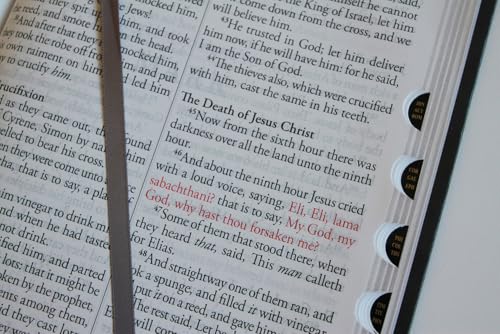 they spit
he reed, and smote him
³¹And after that they
they took the robe off from
s own raiment on him,
y to crucify him.
rucifixion
d as they came out, they found
f Cyrene, Simon by name: him
elled to bear his cross.
en they were come unto
tha, that is to say, a place of
him vinegar to drink
nd when he had tasted
ified him, and parted
lots: that it might be
oken by the prophet,
ents among them,
did they cast lots.
the King of Israel, let him
come down from the cross, and we
will believe him.
⁴³He trusted in God; let him deliver
him now, if he will have him: for he said,
I am the Son of God.
⁴⁴The thieves also, which were crucified
with him, cast the same in his teeth.
The Death of Jesus Christ
⁴⁵Now from the sixth hour there was
darkness over all the land unto the ninth
hour.
⁴⁶And about the ninth hour Jesus cried
with a loud voice, saying, Eli, Eli, lama
sabachthani? that is to say, My God, my
God, why hast thou forsaken me?
⁴⁷Some of them that stood there, when
they heard that, said, This man calleth
for Elias.
⁴⁸And straightway one of them ran, and
took a spunge, and filled it with vinegar,
and put it on a reed, and gave him
The rest said, Let be,
will come
JHN
ACT
ROM
COR
GAL
EPH
PHI
COL
THS
TIM
TIT